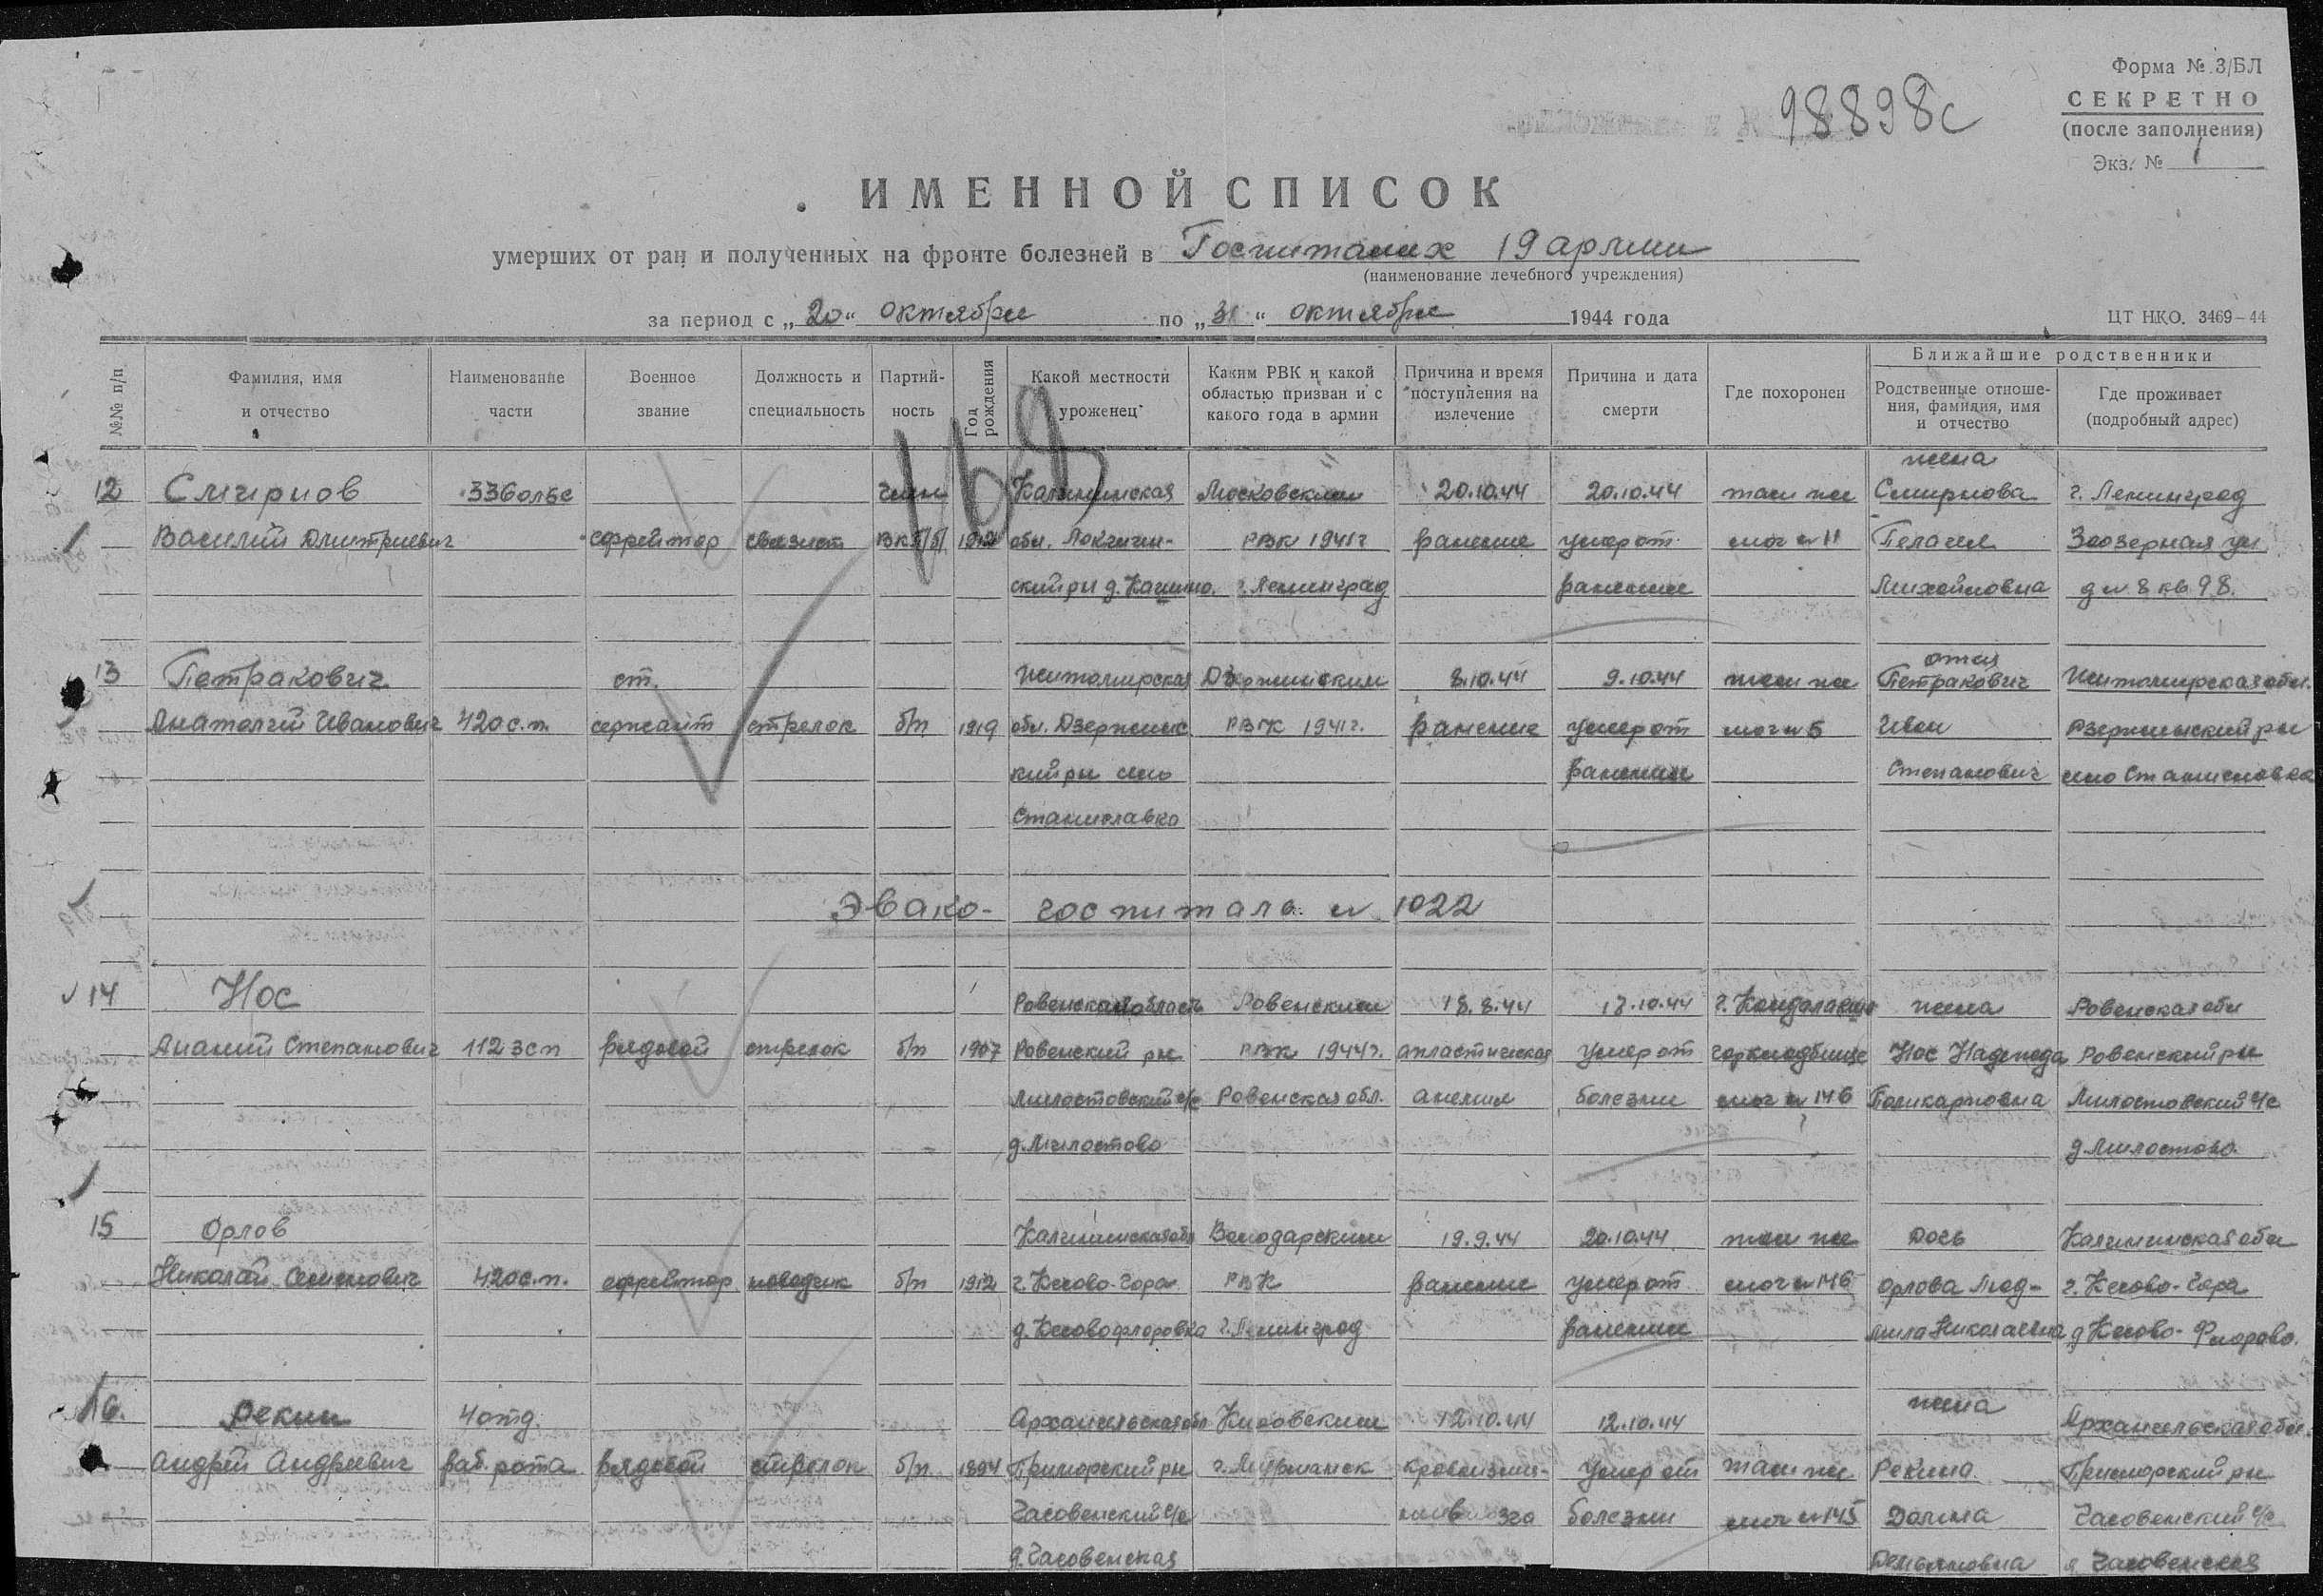 Форма № 3/БЛ
СЕКРЕТНО
(после заполнения)
Экз. № 1
98898с
ИМЕННОЙ СПИСОК
умерших от ран и полученных на фронте болезней в Госпиталях 19 армии
(наименование лечебного учреждения)
за период с „20“ октября по „31“ октября 1944 года
ЦТ НКО. 3469-44
№№ п/п
Фамилия, имя и отчество
Наименование части
Военное звание
Должность и специальность
Партийность
Год рождения
Какой местности уроженец
Каким РВК и какой областью призван и с какого года в армии
Причина и время поступления на излечение
Причина и дата смерти
Где похоронен
Ближайшие родственники
Родственные отношения, фамилия, имя и отчество
Где проживает (подробный адрес)
168
жена
12 Смирнов 336 олбс член Калининская Московским 20.10.44 20.10.44 там же Смирнова г. Ленинград
Василий Дмитриевич ефрейтор связист ВКП/б/ 1912 обл. РВК 1941г ранение умер от мог №11 Пелагея Заозерная ул
ский р-н д. г. Ленинград ранения Михайловна д №8 кв 98.
отец
13 Петракович ст. Житомирская Дзержинским 8.10.44 9.10.44 там же Петракович Житомирская обл.
Анатолий Иванович 420 с.п. сержант стрелок б/п 1919 обл. Дзержинс РВК 1941г. ранение умер от мог №5 Иван Дзержинский р-н
кий р-н село ранения Степанович село Станиславка
Станиславка
Эвако- госпиталь № 1022
14 Нос Ровенская область Ровенским 18.8.44 18.10.44 г. Кандалакша жена Ровенская обл
Ананий Степанович 112 зсп рядовой стрелок б/п 1907 Ровенский р-н РВК 1944г. апластическая умер от горкладбище Нос Надежда Ровенский р-н
Милостовский с/с Ровенская обл. анемия болезни мог №146 Поликарповна Милостовский с/с
д. Милостово д. Милостово
15 Орлов Калининская обл Володарским 19.9.44 20.10.44 там же дочь Калининская обл
Николай Семенович 420 с.п. ефрейтор наводчик б/п 1912 г. Кесово-Гора РВК ранение умер от мог №146 Орлова Люд- г. Кесово-Гора
д. Кесовофлоровка г. Ленинград ранения мила Николаевна д Кесово-Флорово.
жена
16. Рекин 4 отд. Архангельская обл Кировским 12.10.44 12.10.44 Архангельская обл.
Андрей Андреевич раб. рота рядовой стрелок б/п 1894 Приморский р-н г. Мурманск кровоизли- умер от там же Рекина Приморский р-н
Часовенский с/с болезни мог №145 Часовенский с/с
д. Часовенская д Часовенская